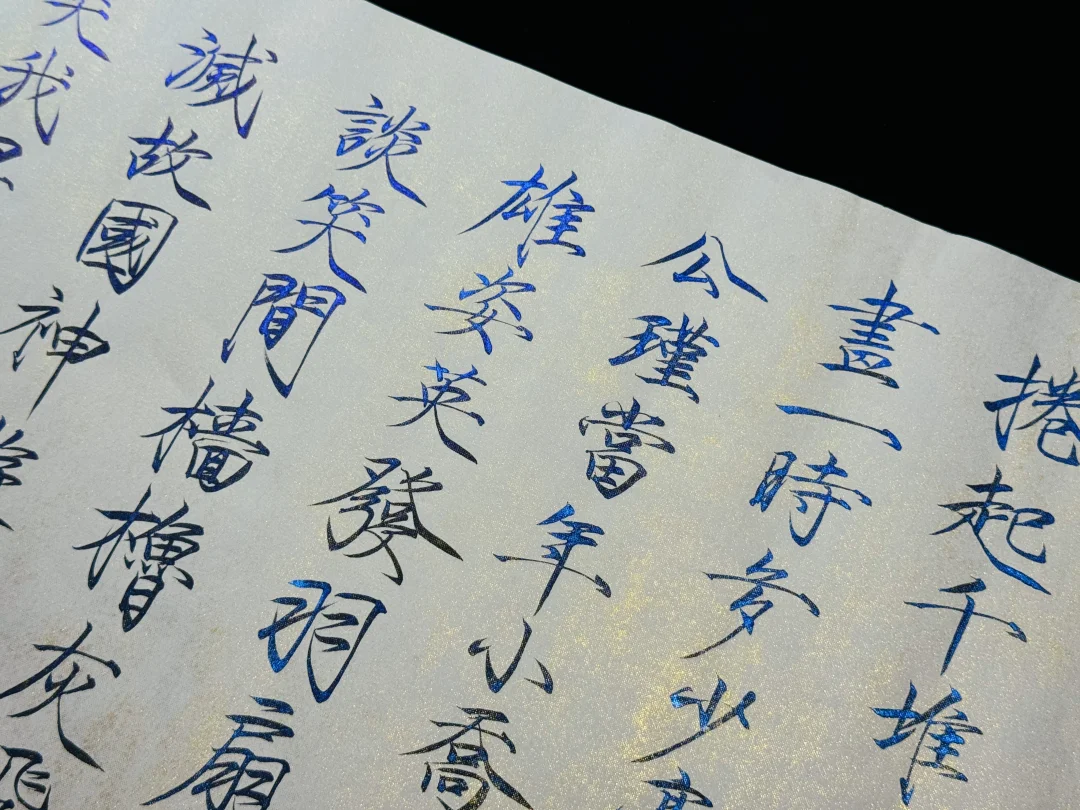 捲起千堆
畫一時多少
公瑾當年小喬
雄姿英發羽扇
談笑間檣櫓灰飛
滅故國神
笑我